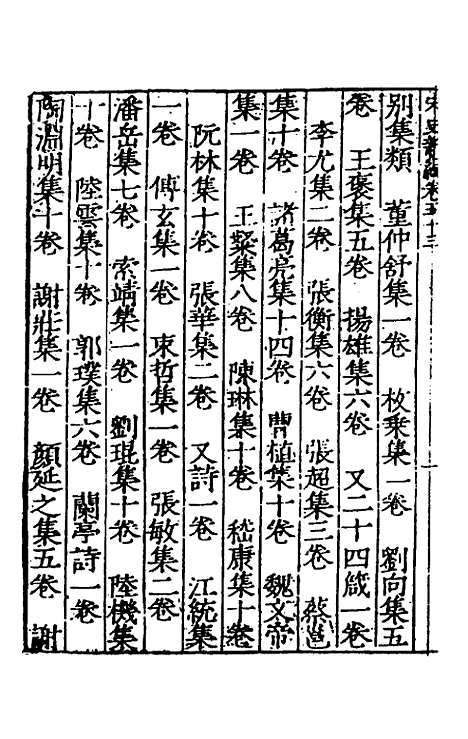 宋史新編卷五十三
別集類　董仲舒集一卷　枚乗集一卷　劉向集五
卷　王褒集五卷　揚雄集六卷　又二十四箴一卷
李尤集二卷　張衡集六卷　張超集三卷　蔡邕
集十卷　諸葛亮集十四卷　曹植集十卷　魏文帝
集一卷　王粲集八卷　陳琳集十卷　嵇康集十卷
阮林集十卷　張華集二卷　又詩一卷　江統集
一卷　傅玄集一卷　束晳集一卷　張敏集二卷
潘岳集七卷　索靖集一卷　劉琨集十卷　陸機集
十卷　陸雲集十卷　郭璞集六卷　蘭亭詩一卷
陶淵明集十卷　謝莊集一卷　顏延之集五卷　謝